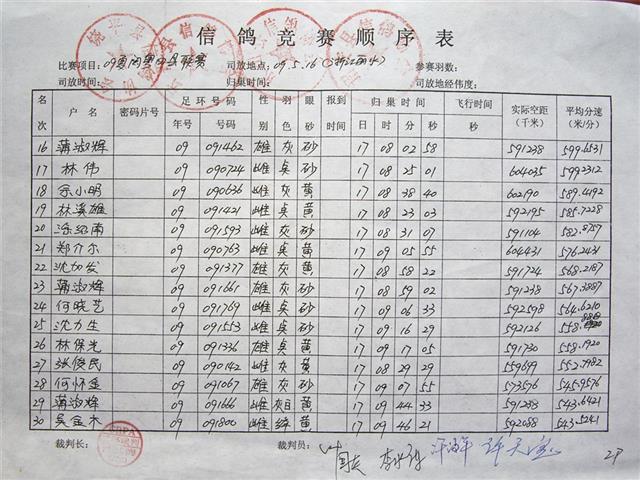 信鸽竞赛顺序表
比赛项目: 司放地点: 09.5.16 参赛羽数:
司放时间: 归巢时间: 司放地经伟度:
名次 户名 密码片号 足环号码 年号 号码 性别 羽色 眼砂 报到时间 归巢时间 日 时 分 秒 飞行时间 秒 实际空距(千米) 平均分速(米/分)
16 蒲淑辉 09 091462 雄 灰 砂 17 08 02 58 591238 599.6531
17 林伟 09 090724 雌 吴 砂 17 08 25 01 604035 599.2312
18 余小明 09 090636 雌 灰 黄 17 08 38 40 602190 589.4492
19 林溪雄 09 091421 雌 吴 黄 17 08 23 03 592195 585.7228
20 绍南 09 091593 雌 灰 砂 17 08 31 07 591104 582.8757
21 郑介尔 09 090763 雌 吴 黄 17 09 05 55 604431 576.2431
22 沈加发 09 091377 雄 灰 黄 17 08 58 22 591724 568.2187
23 蒲淑辉 09 091661 雄 灰 砂 17 08 59 02 591238 567.3887
24 何晓艺 09 091769 雌 吴 砂 17 09 06 33 592598 564.6210
25 沈力生 09 091553 雌 吴 砂 17 09 16 29 592126 558.
26 林保光 09 091336 雄 吴 黄 17 09 17 05 591730 558.1920
27 张俊民 09 090142 雌 灰 黄 17 08 29 29 559699 552.7982
28 何怀金 09 091067 雄 灰 砂 17 09 07 55 573576 545.9576
29 蒲淑辉 09 091666 雌 黄 17 09 44 33 591238 543.6421
30 吴金木 09 091800 雌 绛 黄 17 09 46 21 592088 543.5241
裁判长: 裁判员: